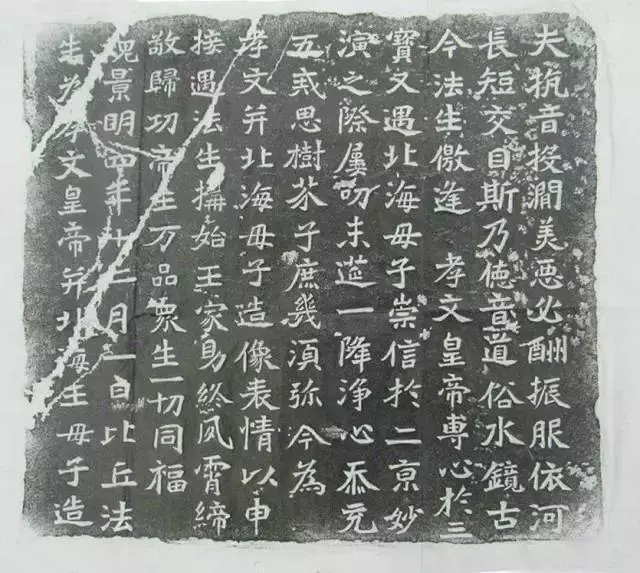 夫抗音投澗美惡必酬振服依河
長短交目斯乃徳音道俗水鏡古
今法生儌逢 孝文皇帝專心於三
寶又遇北海母子崇信於二京妙
演之際屢叨末筵一降淨心忝充
五戒思樹芥子庶幾湏弥今為
孝文并北海母子造像表情以申
接遇法生構始王家勇終夙霄締
敬歸功帝王万品衆生一切同福
魏景明四年十二月一日比丘法
生為孝文皇帝并北海王母子造